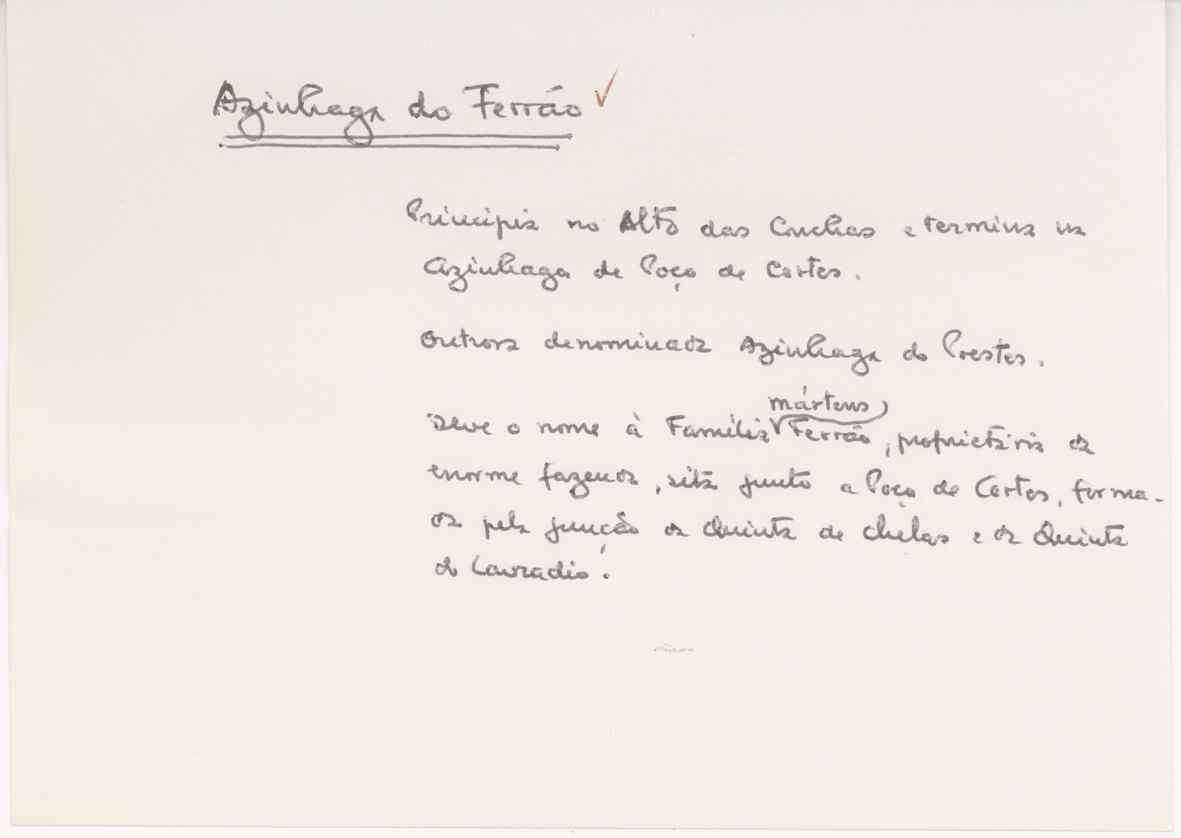 Azinhaga do Ferrão
Principia no Alto das Conchas e termina na
Azinhaga de Poço de Cortes.
Outrora denominada Azinhaga do Prestes.
mártens
Deve o nome à Família Ferrão, proprietária da
enorme fazenda, sita junto a Poço de Cortes, forma-
da pela junção da Quinta de Chelas e da Quinta
do Lavradio.